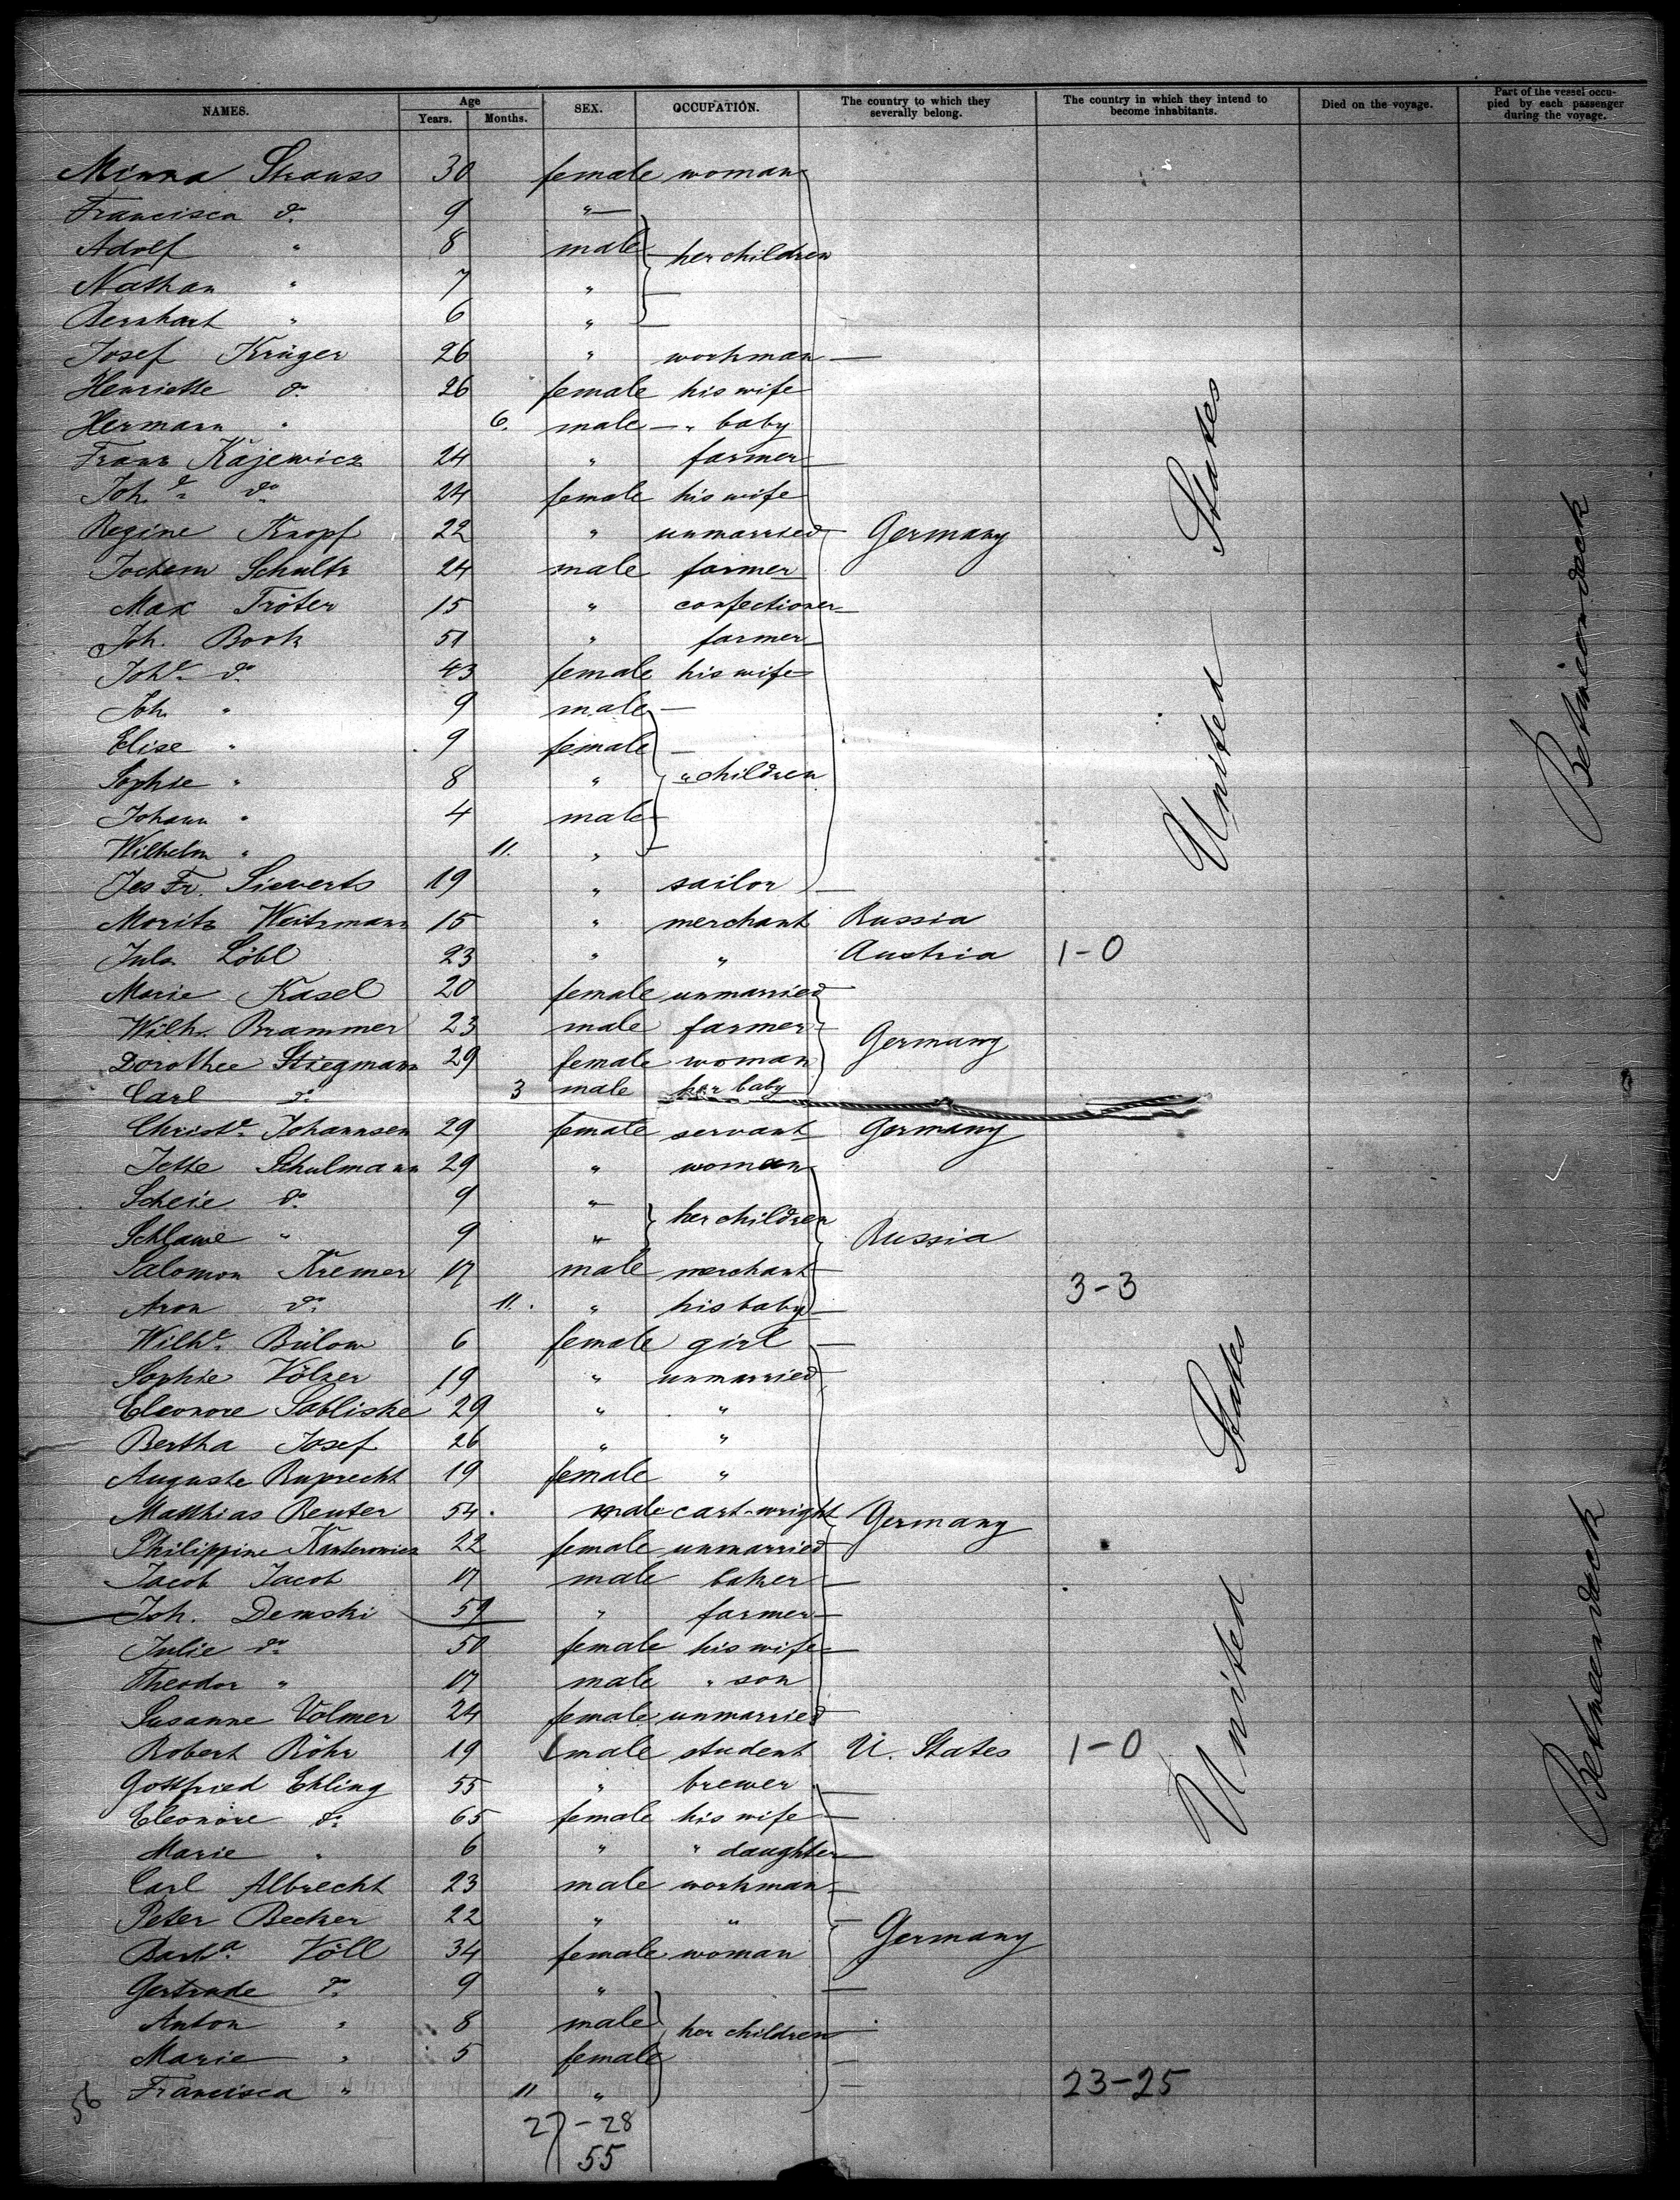 NAMES. Age Years. Months. SEX. OCCUPATION. The country to which they severally belong. The country in which they intend to become inhabitants. Died on the voyage. Part of the vessel occupied by each passenger during the voyage.
Minna Strauss 30 female woman
Francisca do. 9 "
Adolf " 8 male her children
Nathan " 7 "
Bernhart " 6 "
Josef Krüger 26 " workman
Henriette do. 26 female his wife
Hermann " 6. male " baby
Franz Kajewicz 24 " farmer
Joh.e do. 24 female his wife
Regine Knopf 22 " unmarried Germany
Jochem Schultz 24 male farmer
Max Tröter 15 " confectioner
Joh. Book 51 " farmer
Johe. do. 43 female his wife
Joh. " 9 male
Elise " 9 female
Sophie " 8 " " children
Johann " 4 male
Wilhelm " 11. "
Jes Fr. Sieverts 19 " sailor
Moritz Weitzmann 15 " merchant Russia
Jula Löbl 23 " " Austria 1-0
Marie Kasel 20 female unmarried
Wilh. Brammer 23 male farmer Germany
Dorothee Stiegmann 29 female woman
Carl do. 3 male her baby
Christe. Johannsen 29 female servant Germany
Jette Schulmann 29 " woman
Scheie do. 9 " her children
Schlawe " 9 " Russia
Salomon Kremer 17 male merchant
3-3
Aron do. 11. " his baby
Wilhe. Bülow 6 female girl
Sophie Völzer 19 " unmarried
Eleonore Sabliske 29 " "
Bertha Josef 26 " "
Auguste Ruprecht 19 female "
Matthias Reuter 54. male cart-wright Germany
Philippine Kanterowicz 22 female unmarried
Jacob Jacob 17 male baker
Joh. Demski 59 " farmer
Julie do. 50 female his wife
Theodor " 17 male " son
Susanne Volmer 24 female unmarried
Robert Röhr 19 male student U. States 1-0
Gottfried Ehling 55 " brewer
Eleonore do. 65 female his wife
Marie " 6 " " daughter
Carl Albrecht 23 male workman
Peter Becker 22 " " Germany
Barba. Völl 34 female woman
Gertrude do. 9 "
Anton " 8 male her children
Marie " 5 female
56 Francisca " 11 " 23-25
27-28
55
United States
United States
Betweendeck
Betweendeck